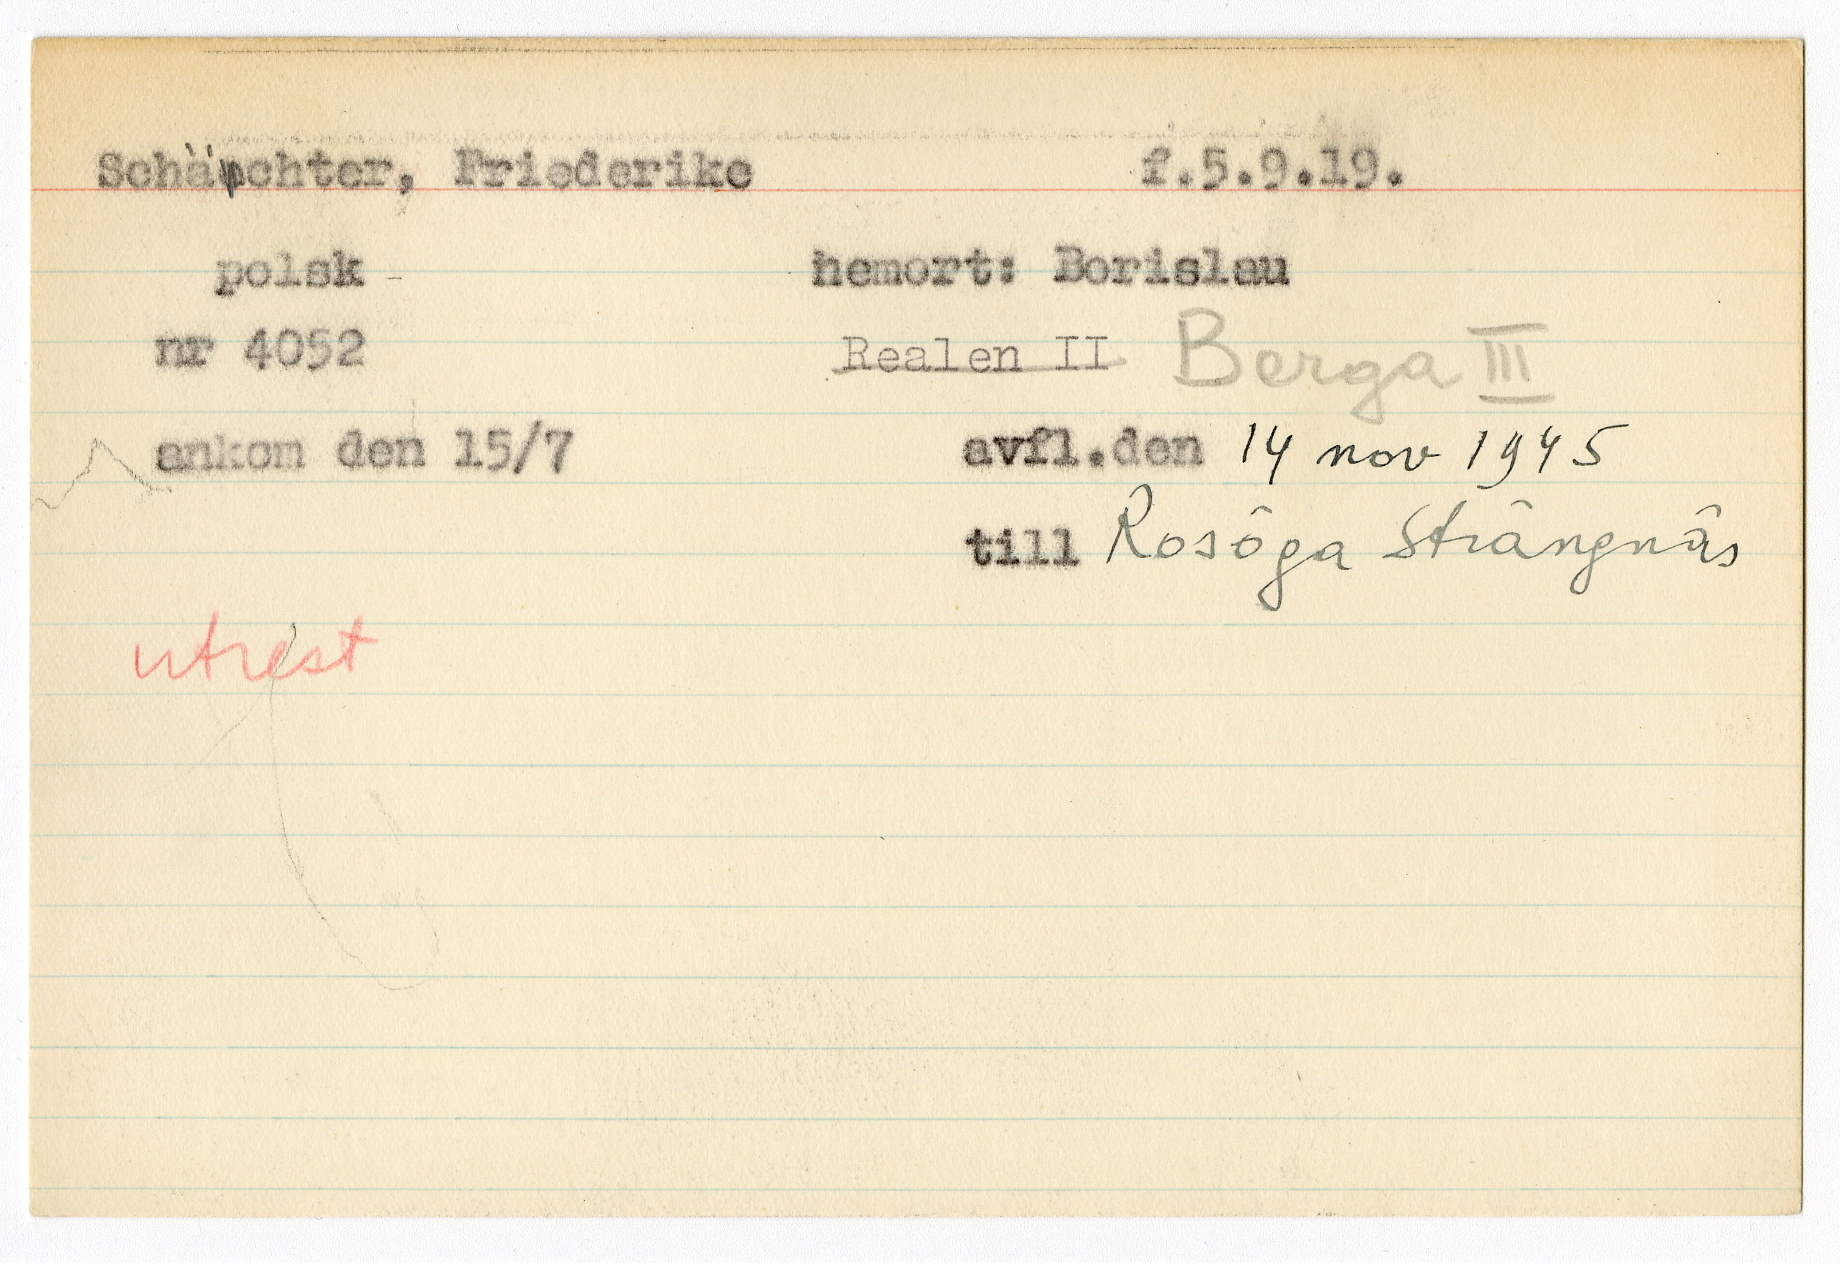 Schächter, Friederike f.5.9.19.
polsk hemort: Borislau
nr 4052 Realen II Berga III
ankom den 15/7 avfl.den 14 nov 1945
till Rosöga Strängnäs
utrest